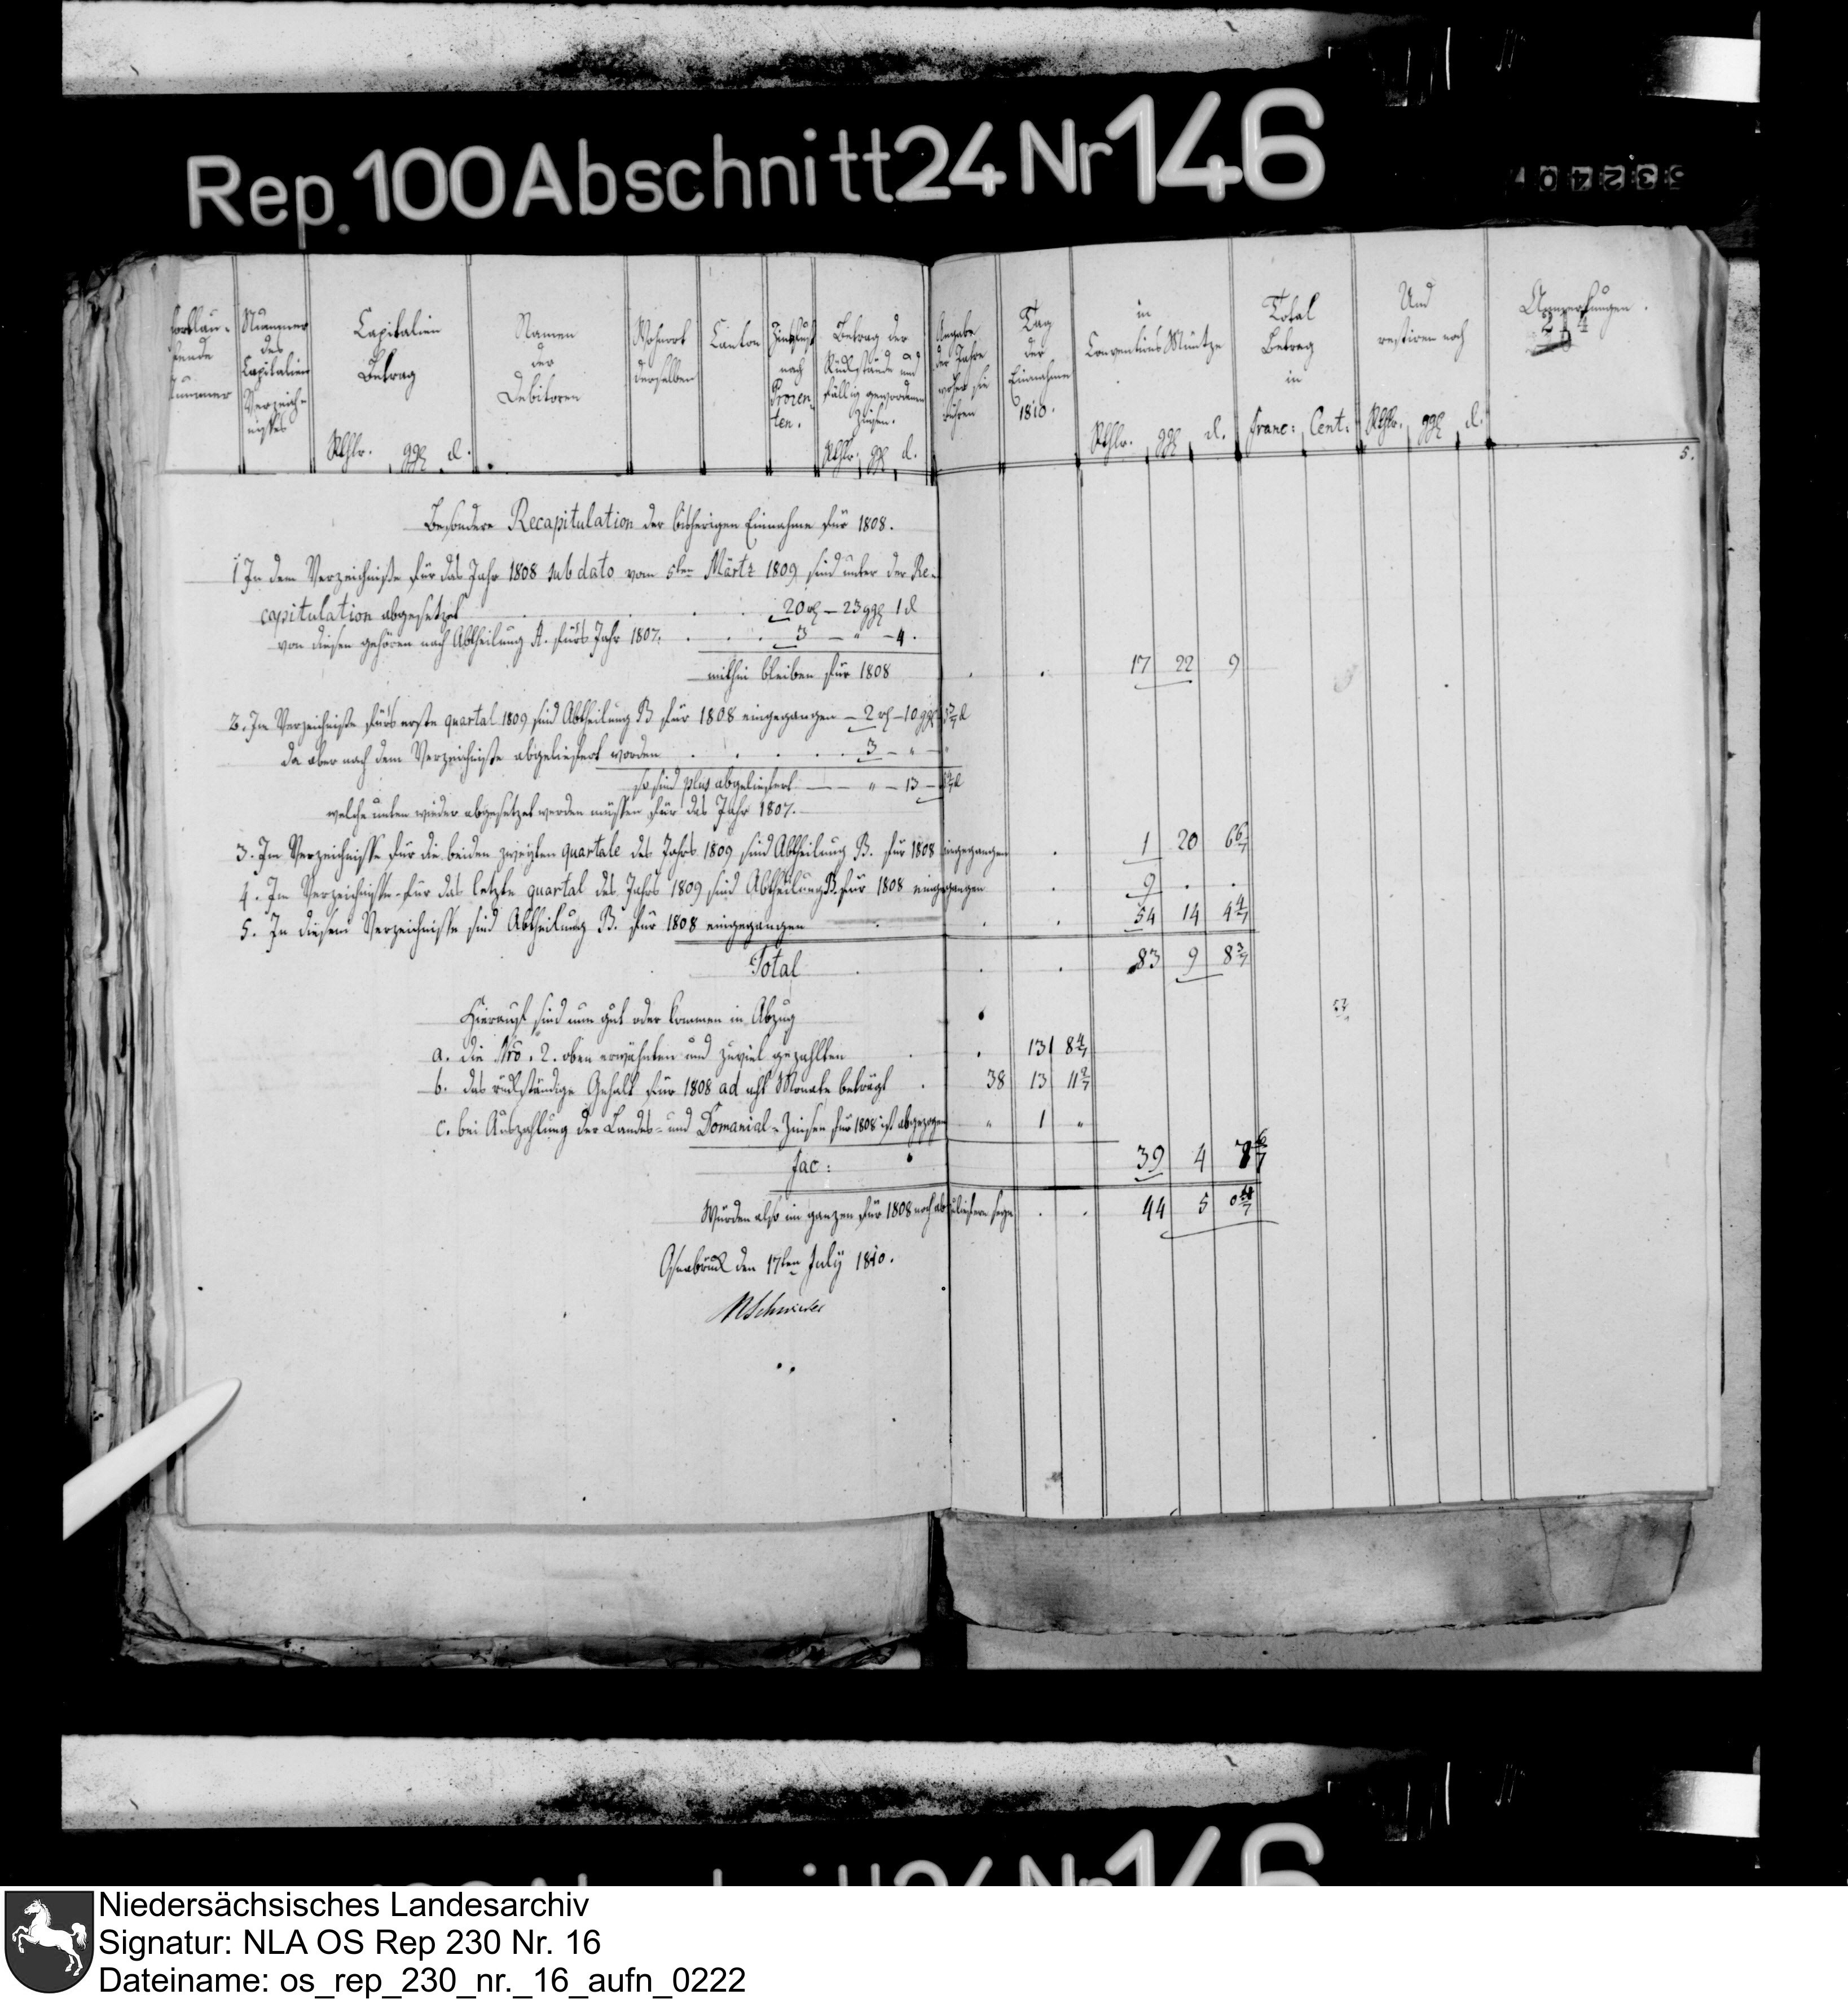 Rep. 100 Abschnitt 24 Nr 146
533240
fortlau-
fende
Nummer
Nummer
des
Capitalien
Verzeich-
nisses
Capitalien
Betrag
Rthlr. ggl d.
Namen
der
Debitoren
Wohnort
derselben
Canton
Zinsfuß
nach
Prozen-
ten.
Betrag der
Rückstände und
fällig gewordenen
Zinsen.
Rthlr. ggl d.
Angabe
der Jahre
woher sie
rühren
Tag
der
Einnahme
1810.
in
Conventions Müntze
Rthlr. ggl d.
Total
Betrag
in
franc: Cent:
Und
restiren noch
Rthlr. ggl d.
Anmerkungen.
214
5.
Besondere Recapitulation der bisherigen Einnahme für 1808.
1 In dem Verzeichniße für das Jahr 1808 sub dato vom 5ten Märtz 1809 sind unter der Re-
capitulation abgesetzet 20 rl – 23 ggl 1 d
von diesen gehören nach Abtheilung A. fürs Jahr 1807. 3 – " – 4.
mithin bleiben für 1808 17 22 9
2. Im Verzeichniße fürs erste quartal 1809 sind Abtheilung B für 1808 eingegangen – 2 rl – 10 ggl 3 3/7 d
da aber nach dem Verzeichniße abgeliefert worden 3 – " – "
so sind plus abgeliefert — " – 13 – 8 4/7 d
welche unten wieder abgesetzet werden müssen für das Jahr 1807.
3. Im Verzeichnisse für die beiden zweyten quartale des Jahrs 1809 sind Abtheilung B. für 1808 eingegangen 1 20 6 6/7
4. Im Verzeichnisse für das letzte quartal des Jahrs 1809 sind Abtheilung B. für 1808 eingegangen 9 . .
5. In diesem Verzeichnisse sind Abtheilung B. für 1808 eingegangen 54 14 4 4/7
Total 83 9 8 3/7
Hierauf sind nun gut oder kommen in Abzug
a. die Nro. 2. oben erwähnten und zuviel gezahlten 13 8 4/7
b. das rückständige Gehalt für 1808 ad acht Monate beträgt 38 13 11 2/7
c. bei Auszahlung der Landes- und Domanial-Zinsen für 1808 ist abgezogen " 1 "
fac: 39 4 7 6/7
Würden also im ganzen für 1808 noch abzuliefern seyn 44 5 0 4/7
Osnabrück den 17ten July 1810.
Niedersächsisches Landesarchiv
Signatur: NLA OS Rep 230 Nr. 16
Dateiname: os_rep_230_nr._16_aufn_0222